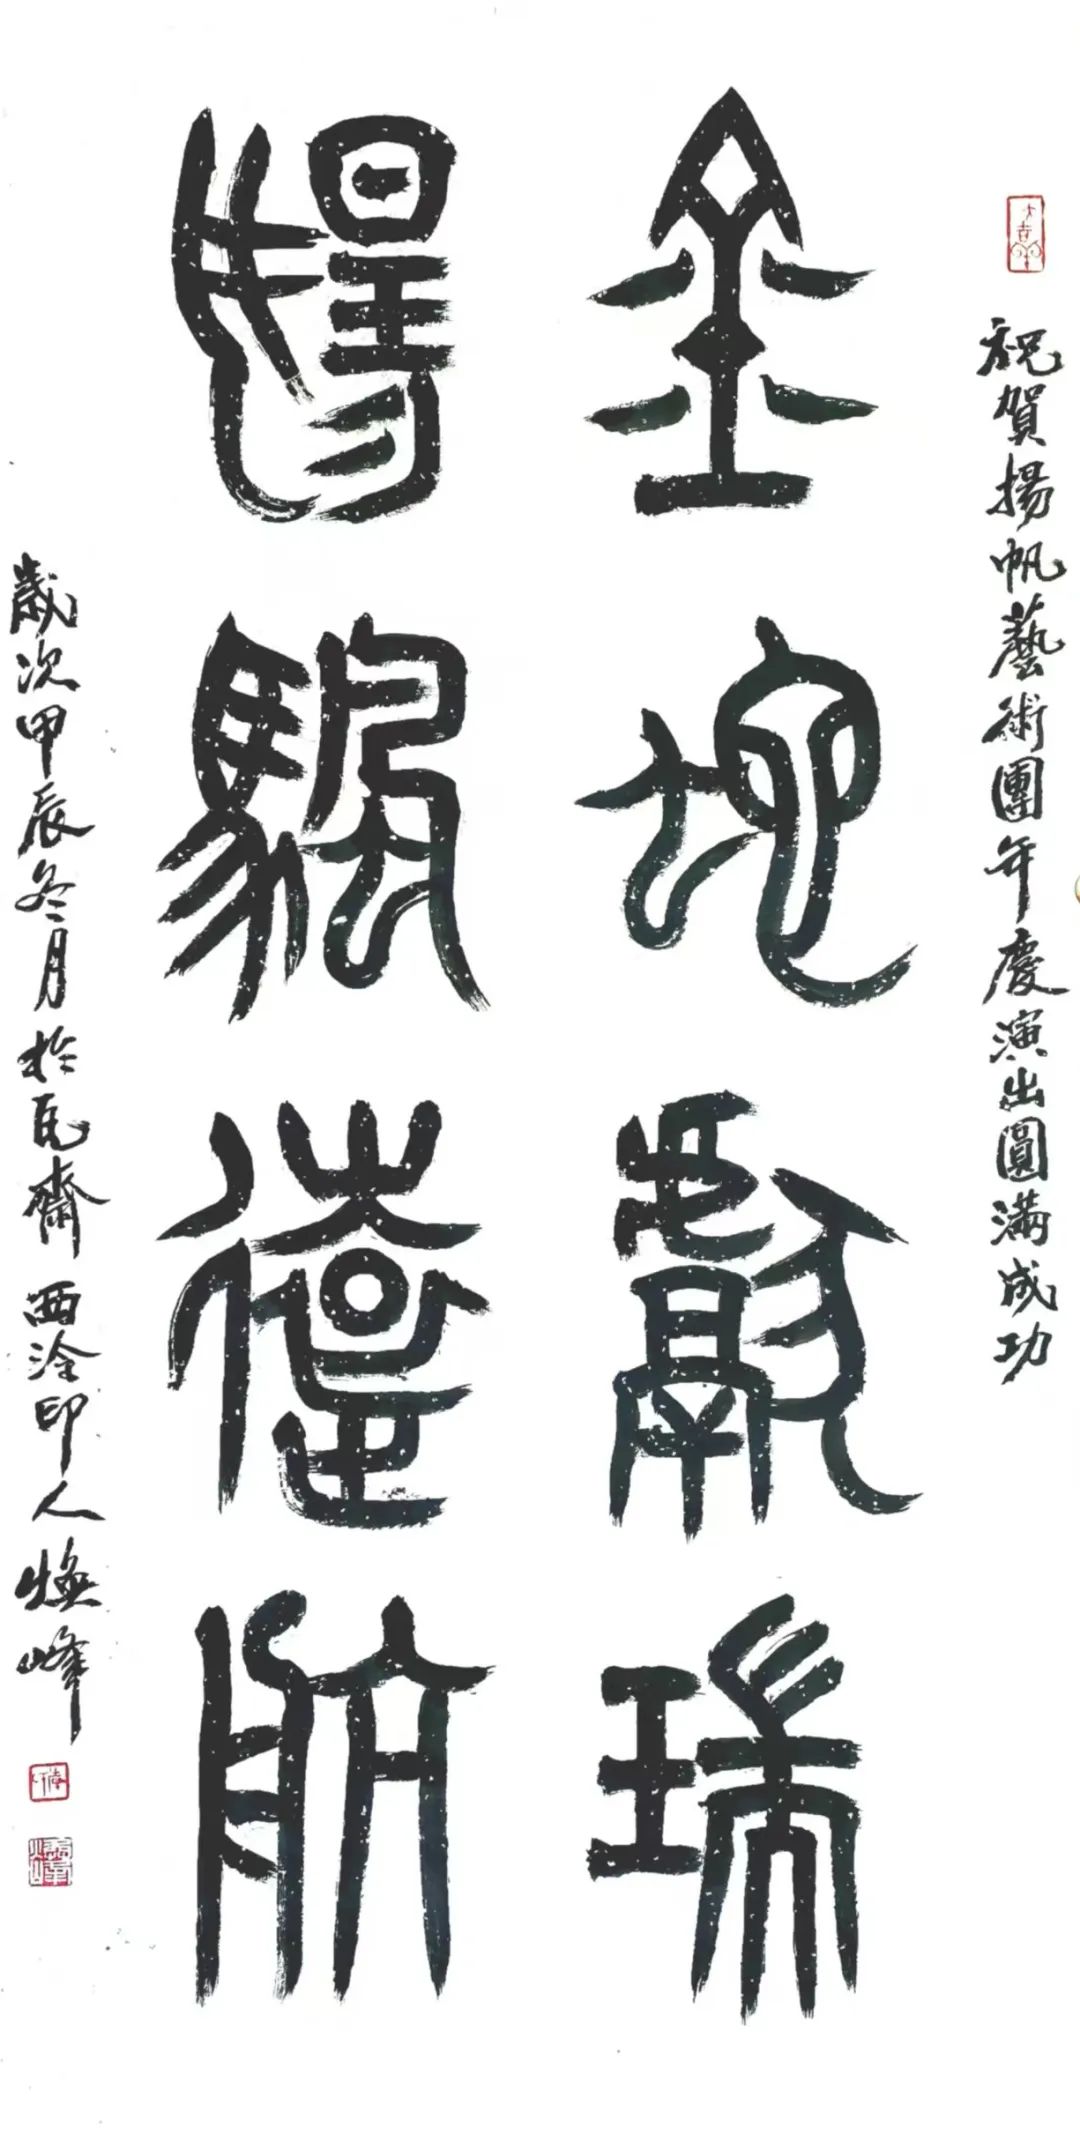 大吉羊
祝賀揚帆藝術團年慶演出圓滿成功
金蛇獻瑞
揚颿遠航
歲次甲辰冬月於瓦齋西泠印人煥峰